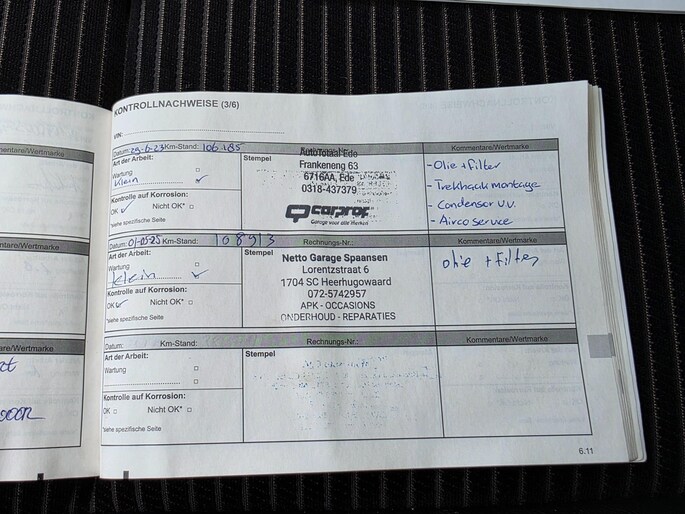 KONTROLLNACHWEISE (3/6)
VIN:
Datum: 29-6-23 Km-Stand: 106.185
Kommentare/Wertmarke
Art der Arbeit:
Wartung
klein
Kontrolle auf Korrosion:
OK Nicht OK*
*siehe spezifische Seite
Stempel
AutoTotaal Ede
Frankeneng 63
6716AA, Ede
0318-437379
carprof
Garage voor alle merken
- Olie + filter
- Trekhaak montage
- Condensor v.v.
- Airco service
Datum: 01-05-25 Km-Stand: 108913
Rechnungs-Nr.:
Kommentare/Wertmarke
Art der Arbeit:
Wartung
klein
Kontrolle auf Korrosion:
OK Nicht OK*
*siehe spezifische Seite
Stempel
Netto Garage Spaansen
Lorentzstraat 6
1704 SC Heerhugowaard
072-5742957
APK - OCCASIONS
ONDERHOUD - REPARATIES
olie + filter
Datum: Km-Stand:
Rechnungs-Nr.:
Kommentare/Wertmarke
Art der Arbeit:
Wartung
Kontrolle auf Korrosion:
OK Nicht OK*
*siehe spezifische Seite
Stempel
6.11